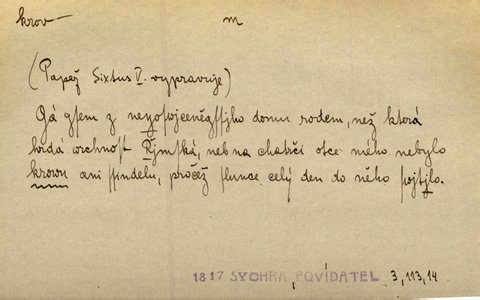 krov — m
(Papež Sixtus V. vypravuje)
Gá gsem z neyosvjceněgssjho domu rodem, než která
hrdá wrchnost Ržjmská, neb na chatrči otce mého nebylo
krowu ani ssindelu, pročež slunce celý den do něho swjtjlo.
1817 SYCHRA, POVÍDATEL 3, 113, 14